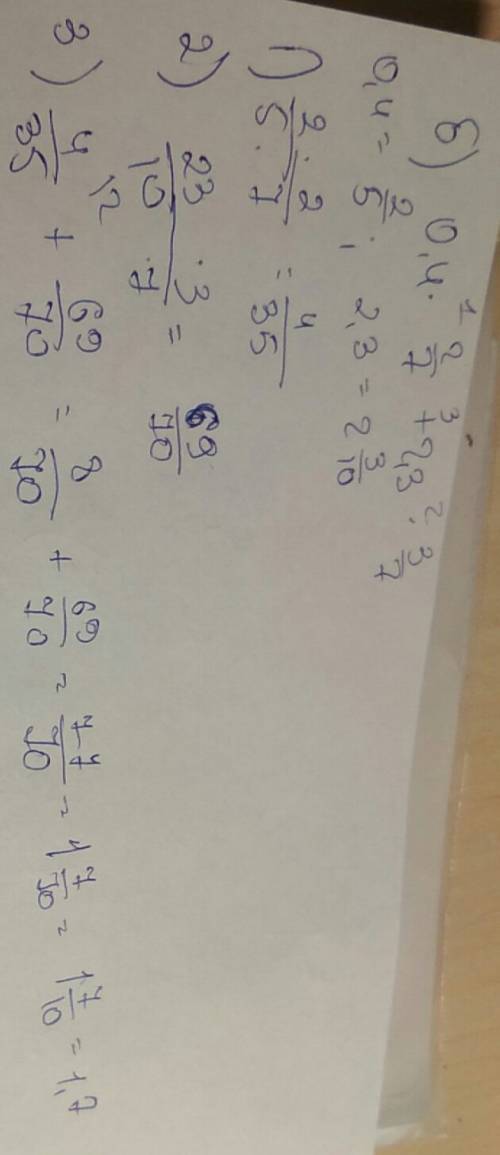 б) 0,4 · 2/7 + 2,3 · 3/7
0,4 = 2/5; 2,3 = 2 3/10
1) 2/5 · 2/7 = 4/35
2) 23/10 · 3/7 = 69/70
3) 4/35 + 69/70 = 8/70 + 69/70 = 77/70 = 1 7/70 = 1 7/10 = 1,7